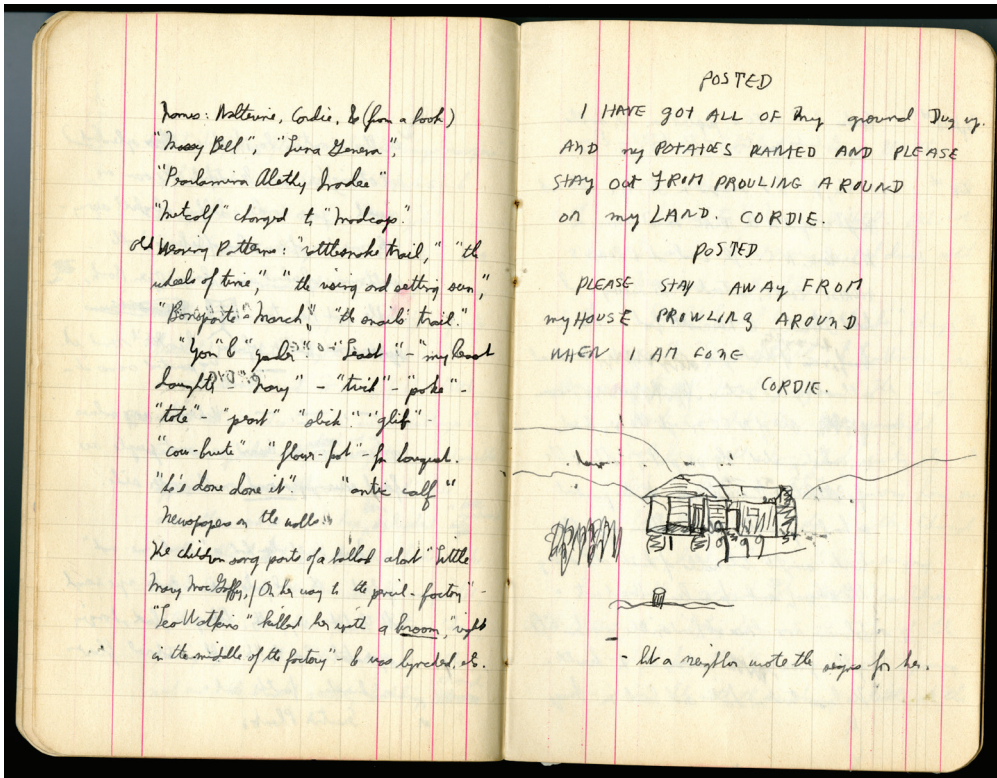 Names: Walterine, Cordie, & (from a book)
"Mossy Bell", "Luna Geneva",
"Pearlamina Alethy Irodee"
"Metcalf" changed to "Madcap."
old Weaving Patterns: "rattlesnake trail," "the
wheels of time," "the rising and setting sun,"
"Bonaparte's March," "the snails' trail."
"Yon" & "yander" "Least" - "my least
daughter" - "nary" - "tuck" - "poke" -
"tote" - "slick" - "glib" -
"cow-brute" "flour-pot" - for bouquet.
"is done done it". "antic calf"
Newspapers on the walls
The children sang parts of a ballad about "Little
Mary MacGaffey, / On her way to the pencil-factory" -
"Leo Watkins" killed her with a broom, "right
in the middle of the factory" - & was lynched, etc.
POSTED
I HAVE gOT ALL OF my ground Dug up.
AND my POTATOES PLANTED AND PLEASE
STAY out FROM PROULING AROUND
ON my LAND. CORDIE.
POSTED
PLEASE STAY AWAY FROM
my HOUSE PROWLING AROUND
WHEN I AM GONE
CORDIE.
- but a neighbor wrote the signs for her.